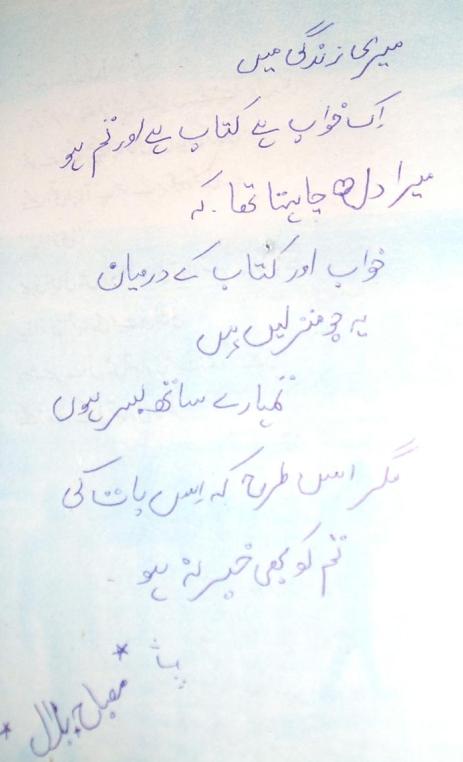 میری زندگی میں
اِک خواب ہے کتاب ہے اور تم ہو
میرا دل چاہتا تھا۔ کہ
خواب اور کتاب کے درمیان
یہ جو منزلیں ہیں
تمہارے ساتھ بسر ہوں
مگر اس طرح کہ اِس بات کی
تم کو بھی خبر نہ ہو۔